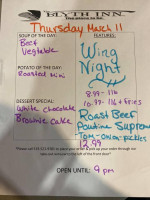 BLYTH INN
Thursday March 11
SOUP OF THE DAY:
FEATURES:
Beef
Vegetable
Wing
Night
POTATO OF THE DAY:
Roasted Mini
8.99 - 1lb
10.99 - 1lb + fries
DESSERT SPECIAL
White chocolate
Brownie Cake
Roast Beef
Poutine Supreme
Tom-onion-pickles
12.99
OPEN UNTIL: 9 pm